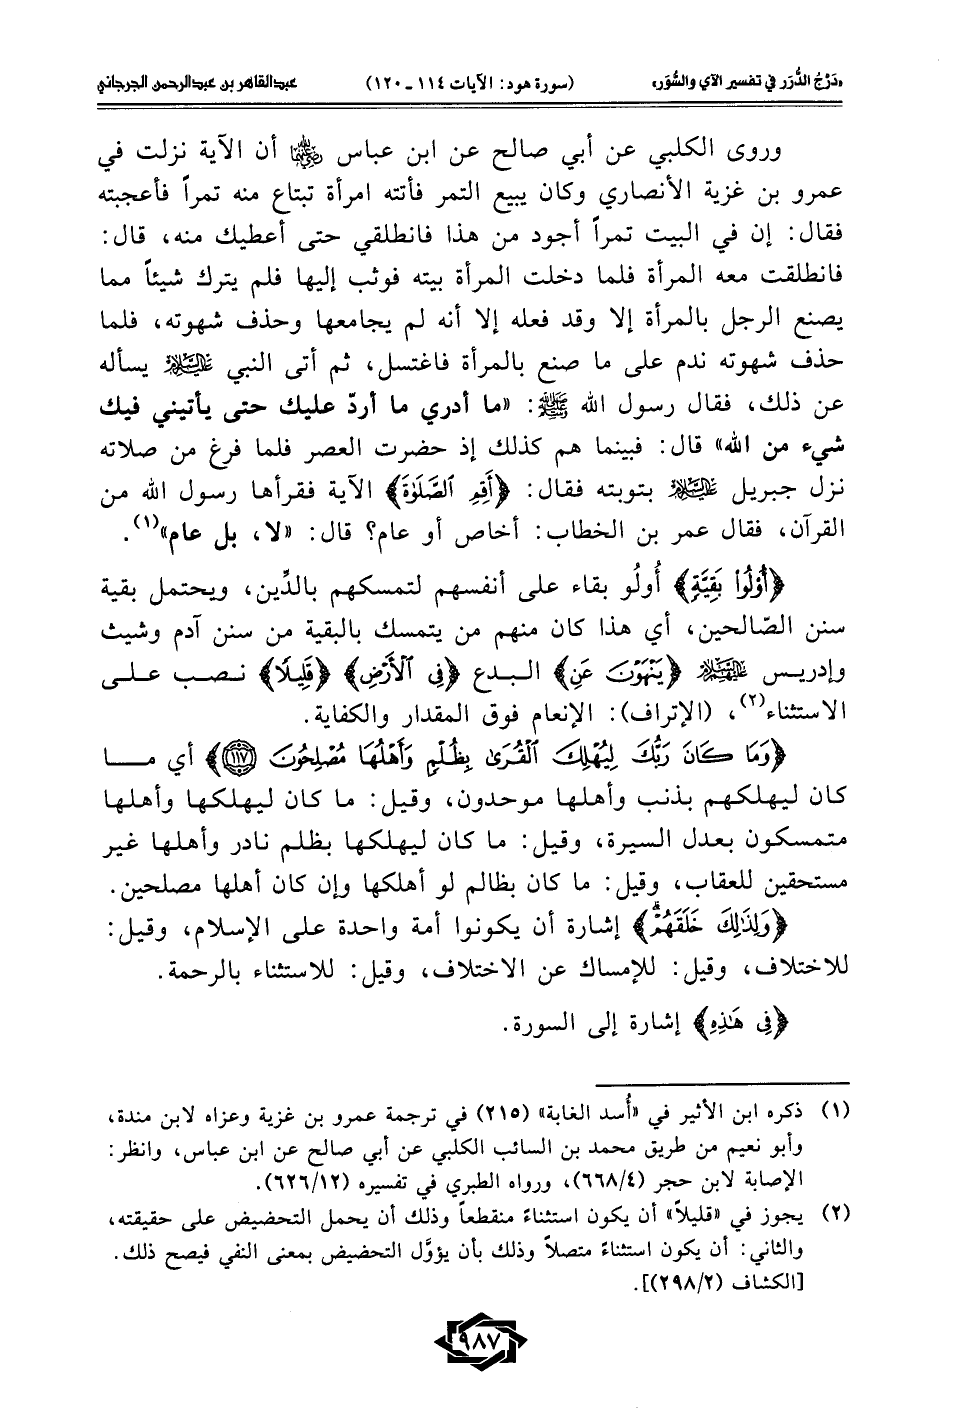 «دَرْجُ الدُّرَر في تفسير الآي والسُّوَر» (سورة هود: الآيات ١١٤ ـ ١٢٠) عبدالقاهر بن عبدالرحمن الجرجاني
وروى الكلبي عن أبي صالح عن ابن عباس رضي الله عنهما أن الآية نزلت في
عمرو بن غزية الأنصاري وكان يبيع التمر فأتته امرأة تبتاع منه تمراً فأعجبته
فقال: إن في البيت تمراً أجود من هذا فانطلقي حتى أعطيك منه، قال:
فانطلقت معه المرأة فلما دخلت المرأة بيته فوثب إليها فلم يترك شيئاً مما
يصنع الرجل بالمرأة إلا وقد فعله إلا أنه لم يجامعها وحذف شهوته، فلما
حذف شهوته ندم على ما صنع بالمرأة فاغتسل، ثم أتى النبي عليه السلام يسأله
عن ذلك، فقال رسول الله ﷺ: «ما أدري ما أردّ عليك حتى يأتيني فيك
شيء من الله» قال: فبينما هم كذلك إذ حضرت العصر فلما فرغ من صلاته
نزل جبريل عليه السلام بتوبته فقال: ﴿أَقِمِ ٱلصَّلَوٰةَ﴾ الآية فقرأها رسول الله من
القرآن، فقال عمر بن الخطاب: أخاص أو عام؟ قال: «لا، بل عام»(١).
﴿أُوْلُواْ بَقِيَّةٍ﴾ أُولُو بقاء على أنفسهم لتمسكهم بالدِّين، ويحتمل بقية
سنن الصّالحين، أي هذا كان منهم من يتمسك بالبقية من سنن آدم وشيث
وإدريس عليهم السلام ﴿يَنْهَوْنَ عَنِ﴾ البدع ﴿فِى ٱلْأَرْضِ﴾ ﴿قَلِيلًا﴾ نصب على
الاستثناء(٢)، (الإتراف): الإنعام فوق المقدار والكفاية.
﴿وَمَا كَانَ رَبُّكَ لِيُهْلِكَ ٱلْقُرَىٰ بِظُلْمٍ وَأَهْلُهَا مُصْلِحُونَ ١١٧﴾ أي ما
كان ليهلكهم بذنب وأهلها موحدون، وقيل: ما كان ليهلكها وأهلها
متمسكون بعدل السيرة، وقيل: ما كان ليهلكها بظلم نادر وأهلها غير
مستحقين للعقاب، وقيل: ما كان بظالم لو أهلكها وإن كان أهلها مصلحين.
﴿وَلِذَٰلِكَ خَلَقَهُمْ ۗ﴾ إشارة أن يكونوا أمة واحدة على الإسلام، وقيل:
للاختلاف، وقيل: للإمساك عن الاختلاف، وقيل: للاستثناء بالرحمة.
﴿فِى هَـٰذِهِ﴾ إشارة إلى السورة.
(١) ذكره ابن الأثير في «أُسد الغابة» (٢١٥) في ترجمة عمرو بن غزية وعزاه لابن مندة،
وأبو نعيم من طريق محمد بن السائب الكلبي عن أبي صالح عن ابن عباس، وانظر:
الإصابة لابن حجر (٦٦٨/٤)، ورواه الطبري في تفسيره (٦٢٦/١٢).
(٢) يجوز في «قليلاً» أن يكون استثناءً منقطعاً وذلك أن يحمل التحضيض على حقيقته،
والثاني: أن يكون استثناءً متصلاً وذلك بأن يؤوَّل التحضيض بمعنى النفي فيصح ذلك.
[الكشاف (٢٩٨/٢)].
٩٨٧